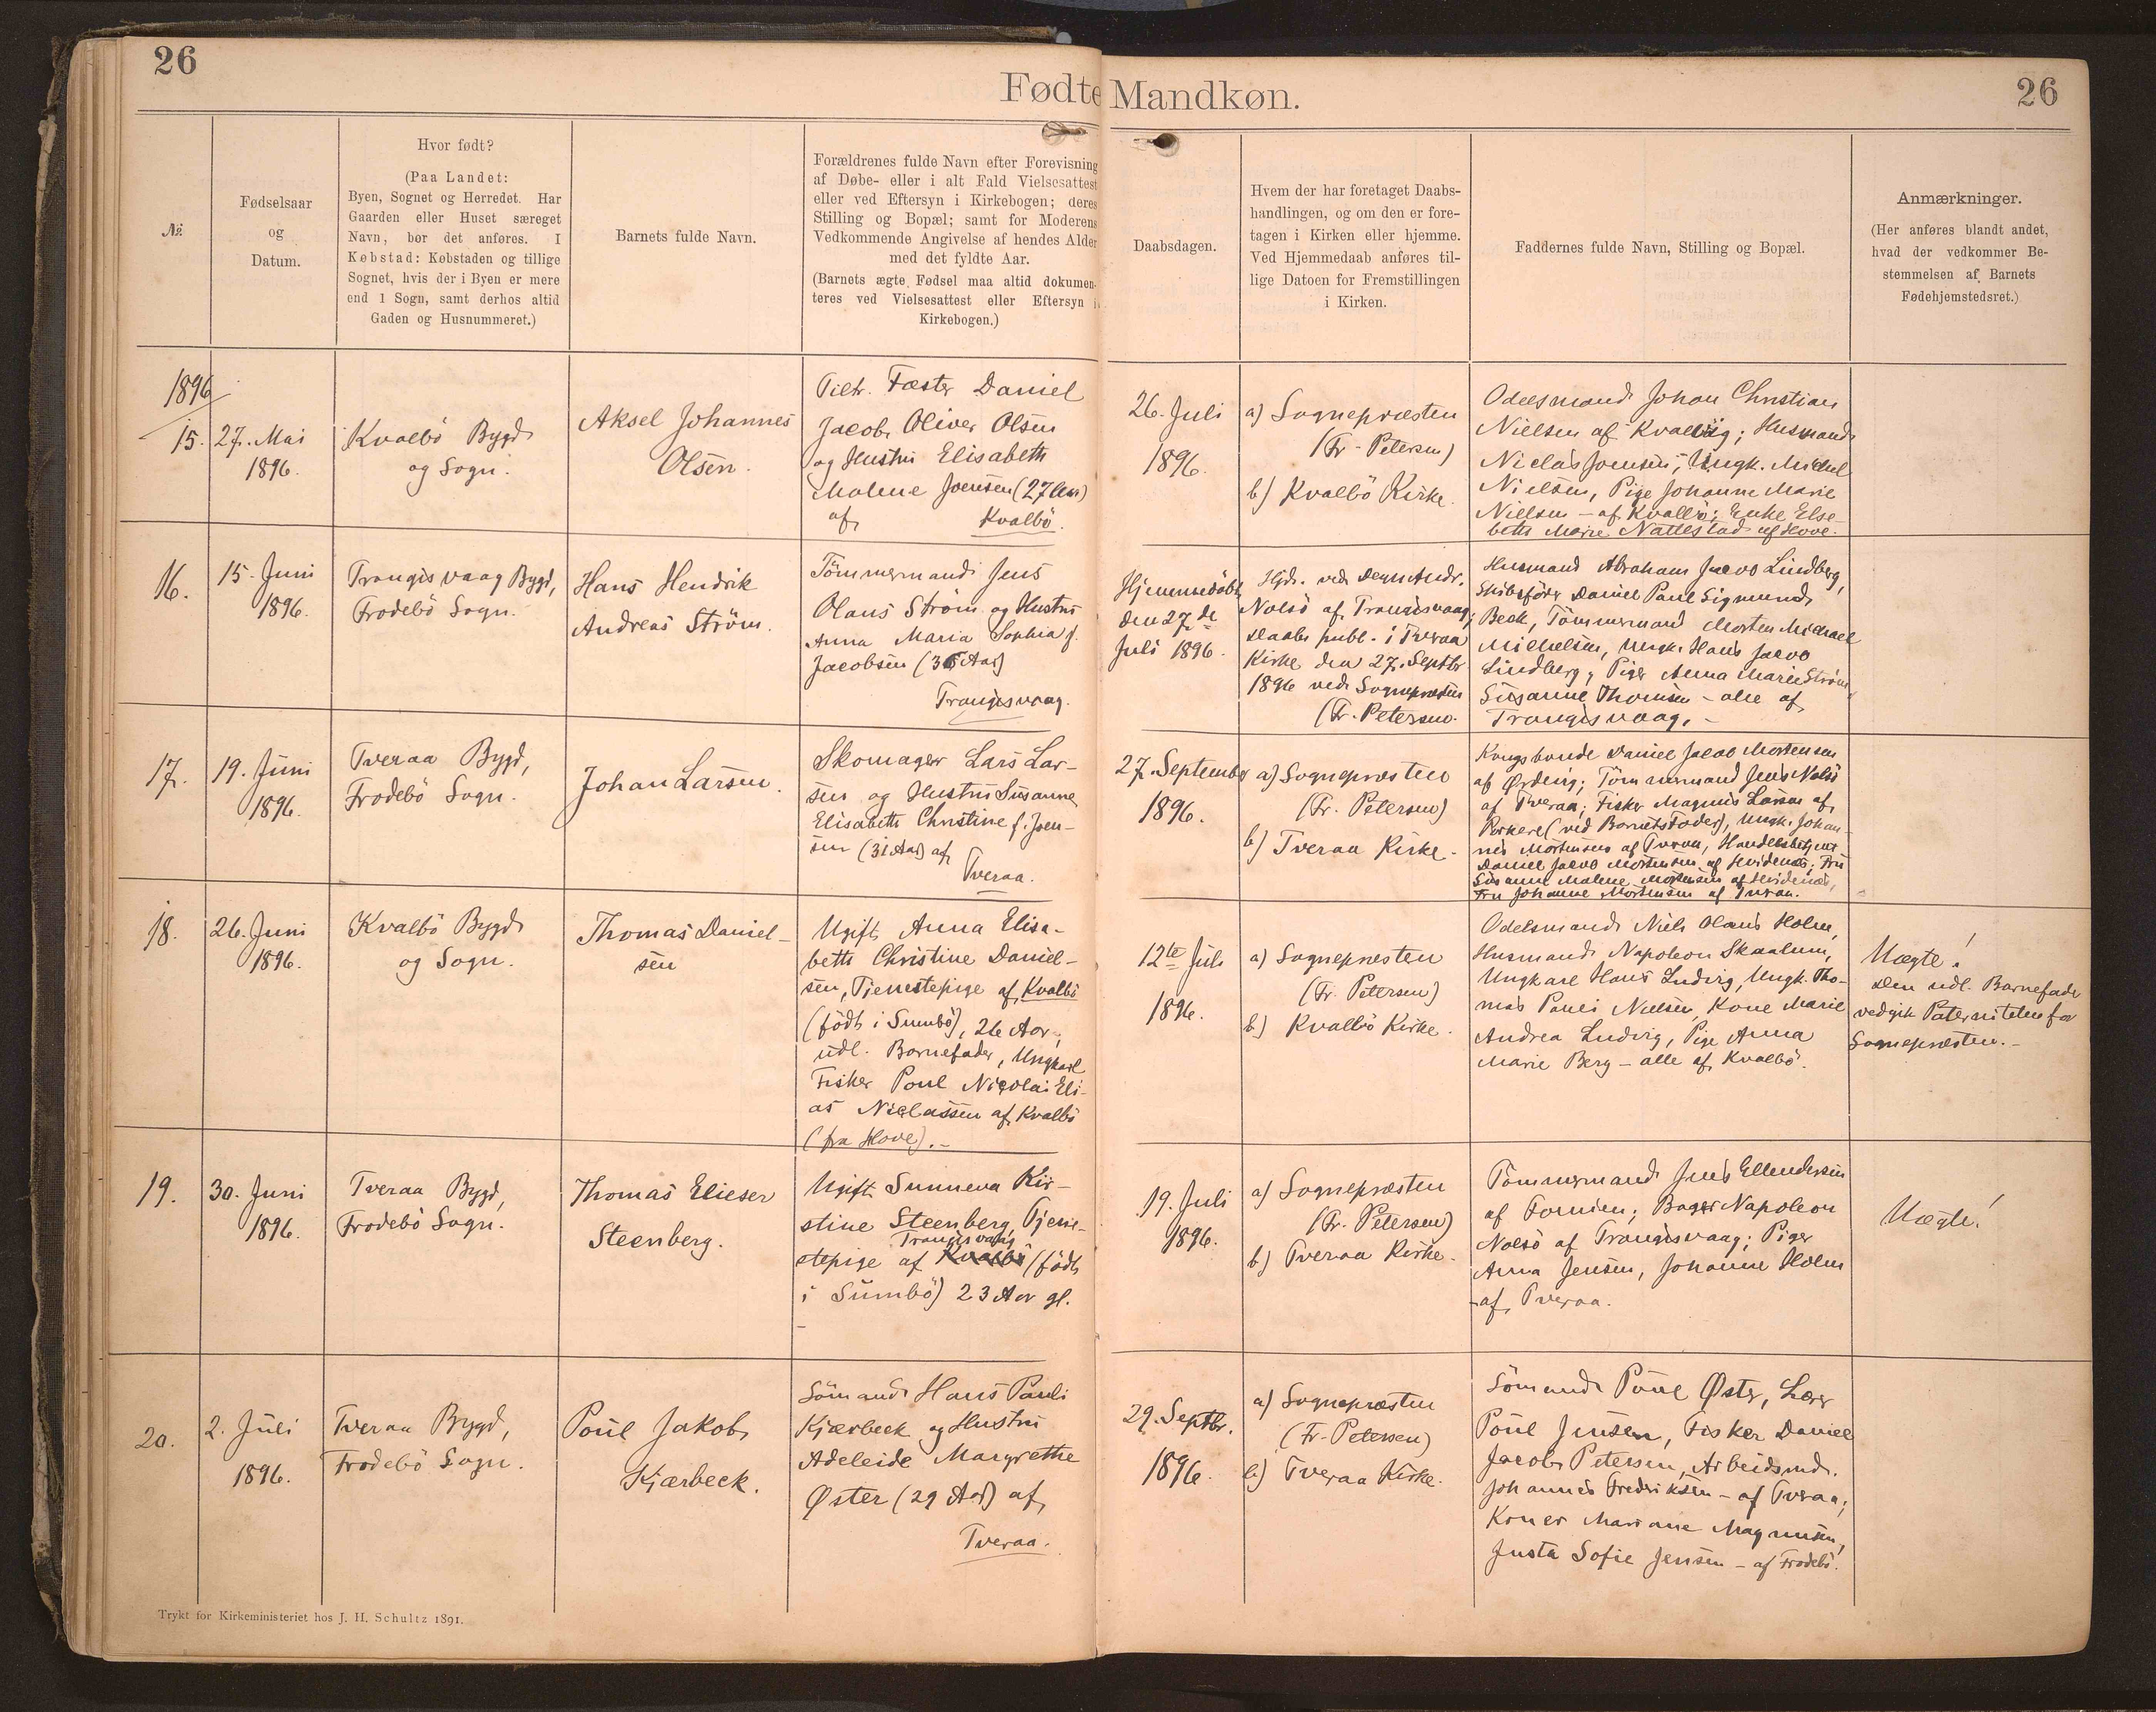 26
Fødte Mandkøn.
26
№
Fødselsaar
og
Datum.
Hvor født?
(Paa Landet:
Byen, Sognet og Herredet. Har
Gaarden eller Huset særeget
Navn, bør det anføres. I
Købstad: Købstaden og tillige
Sognet, hvis der i Byen er mere
end 1 Sogn, samt derhos altid
Gaden og Husnummeret.)
Barnets fulde Navn.
Forældrenes fulde Navn efter Forevisning
af Døbe- eller i alt Fald Vielsesattest
eller ved Eftersyn i Kirkebogen; deres
Stilling og Bopæl; samt for Moderens
Vedkommende Angivelse af hendes Alder
med det fyldte Aar.
(Barnets ægte Fødsel maa altid dokumen-
teres ved Vielsesattest eller Eftersyn i
Kirkebogen.)
Daabsdagen.
Hvem der har foretaget Daabs-
handlingen, og om den er fore-
tagen i Kirken eller hjemme.
Ved Hjemmedaab anføres til-
lige Datoen for Fremstillingen
i Kirken.
Faddernes fulde Navn, Stilling og Bopæl.
Anmærkninger.
(Her anføres blandt andet,
hvad der vedkommer Be-
stemmelsen af Barnets
Fødehjemstedsret.)
1896
15.
27. Mai
1896.
Kvalbö Bygd
og Sogn.
Aksel Johannes
Olsen.
Fæster Daniel
Jacob Oliver Olsen
og Hustru Elisabeth
Malene Joensen (27 Aar)
af
Kvalbö.
26. Juli
1896.
a) Sognepræsten
(Fr. Petersen)
b) Kvalbö Kirke.
Odelsmand Johan Christian
Nielsen af Kvalbö; Husmand
Niclas Joensen, Ungk. Michel
Nielsen, Pige Johanne Marie
Nielsen – af Kvalbö; Enke Else-
beth Marie Nattestad af Hove.
16.
15. Juni
1896.
Trangisvaag Bygd,
Frodebö Sogn.
Hans Hendrik
Andreas Ström.
Tömmermand Jens
Olaus Ström og Hustru
Anna Maria Sophia f.
Jacobsen (36 Aar)
Trangisvaag.
Hjemmedöbt
den 27de
Juli 1896.
Hjd. ved Degn Andr.
Nolsö af Trangisvaag;
Daab publ. i Tveraa
Kirke den 27. Septbr
1896 ved Sognepræsten
(Fr. Petersen.
Husmand Abraham Jacob Lindberg,
Skibsförer Daniel Paul Sigmund
Beck, Tömmermand Morten Michael
Michelsen, Ungk. Hans Jacob
Lindberg, Piger Anna Marie Ström,
Susanne Thomsen – alle af
Trangisvaag. –
17.
19. Juni
1896.
Tveraa Bygd,
Frodebö Sogn.
Johan Larsen.
Skomager Lars Lar-
sen og Hustru Susanne
Elisabeth Christine f. Joen-
sen (31 Aar) af
Tveraa.
27. September
1896.
a) Sognepræsten
(Fr. Petersen)
b) Tveraa Kirke.
Kongsbonde Daniel Jacob Mortensen
af Ørdevig; Tömmermand Jens Nolsö
af Tveraa; Fisker Magnus Larsen af
Porkere (ved Barnets Fader), Ungk. Johan-
nes Mortensen af Tveraa, Handelsbetjent
Daniel Jacob Mortensen af Hvidenæs; Fru
Susanne Malene Mortensen af Hvidenæs,
Fru Johanne Mortensen af Tveraa.
18.
26. Juni
1896.
Kvalbö Bygd
og Sogn.
Thomas Daniel-
sen
Ugift Anna Elisa-
beth Christine Daniel-
sen, Tjenestepige af Kvalbö
(födt i Sumbö), 26 Aar;
udl. Barnefader, Ungkarl
Fisker Poul Nicolai Eli-
as Niclassen af Kvalbö
(fra Hove). –
12te Juli
1896.
a) Sognepræsten
(Fr. Petersen)
b) Kvalbö Kirke.
Odelsmand Niels Olaus Holm,
Husmand Napoleon Skaalum,
Ungkarl Hans Ludvig, Ungk. Tho-
mas Pauli Nielsen, Kone Marie
Andrea Ludvig, Pige Anna
Marie Berg – alle af Kvalbö.
Uægte!
Den udl. Barnefader
vedgik Paterniteten for
Sognepræsten. –
19.
30. Juni
1896.
Tveraa Bygd,
Frodebö Sogn.
Thomas Elieser
Steenberg.
Ugift Sunneva Kir-
stine Steenberg, Tjene-
Trangisvaag
stepige af Kvalbö (födt
i Sumbö) 23 Aar gl.
–
19. Juli
1896.
a) Sognepræsten
(Fr. Petersen)
b) Tveraa Kirke.
Tömmermand Jens Ellendersen
af Famien; Bager Napoleon
Nolsö af Trangisvaag; Piger
Anna Jensen, Johanne Holm
– af Tveraa.
Uægte!
20.
2. Juli
1896.
Tveraa Bygd,
Frodebö Sogn.
Poul Jakob
Kjærbeck.
Sömand Hans Pauli
Kjærbeck og Hustru
Adeleide Margrethe
Øster (29 Aar) af
Tveraa.
29. Septbr.
1896.
a) Sognepræsten
(Fr. Petersen)
b) Tveraa Kirke.
Sömand Poul Øster, Lærer
Poul Jensen, Fisker Daniel
Jacob Petersen, Arbeidsmd.
Johannes Frederiksen – af Tveraa;
Koner Mariane Magnusen,
Justa Sofie Jensen – af Frodebö.
Trykt for Kirkeministeriet hos J. H. Schultz 1891.